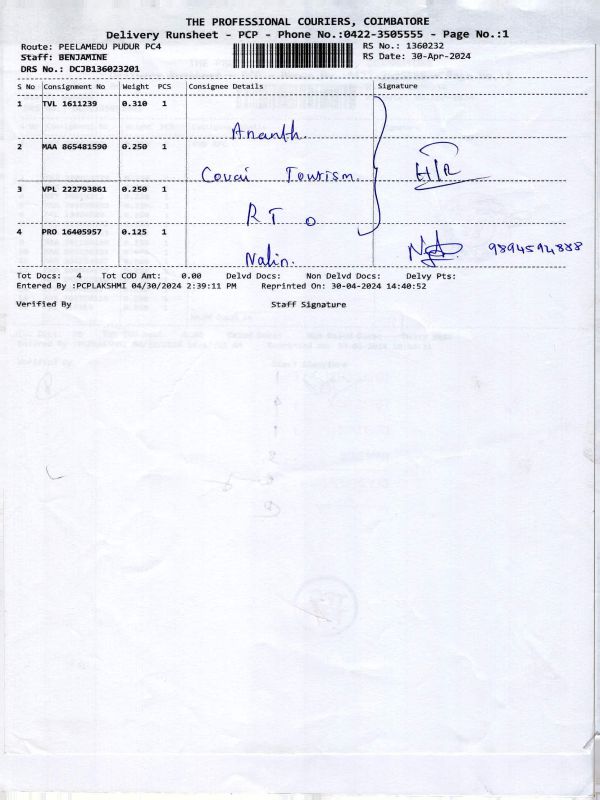 THE PROFESSIONAL COURIERS, COIMBATORE
Delivery Runsheet - PCP - Phone No.:0422-3505555 - Page No.:1
Route: PEELAMEDU PUDUR PC4
RS No.: 1360232
Staff: BENJAMINE
RS Date: 30-Apr-2024
DRS No.: DCJB136023201
S No Consignment No Weight PCS Consignee Details Signature
1 TVL 1611239 0.310 1
Ananth.
2 MAA 865481590 0.250 1
Covai Tourism H/R
3 VPL 222793861 0.250 1
RTO
4 PRO 16405957 0.125 1
Nalin. 9894594888
Tot Docs: 4 Tot COD Amt: 0.00 Delvd Docs: Non Delvd Docs: Delvy Pts:
Entered By :PCPLAKSHMI 04/30/2024 2:39:11 PM Reprinted On: 30-04-2024 14:40:52
Verified By Staff Signature